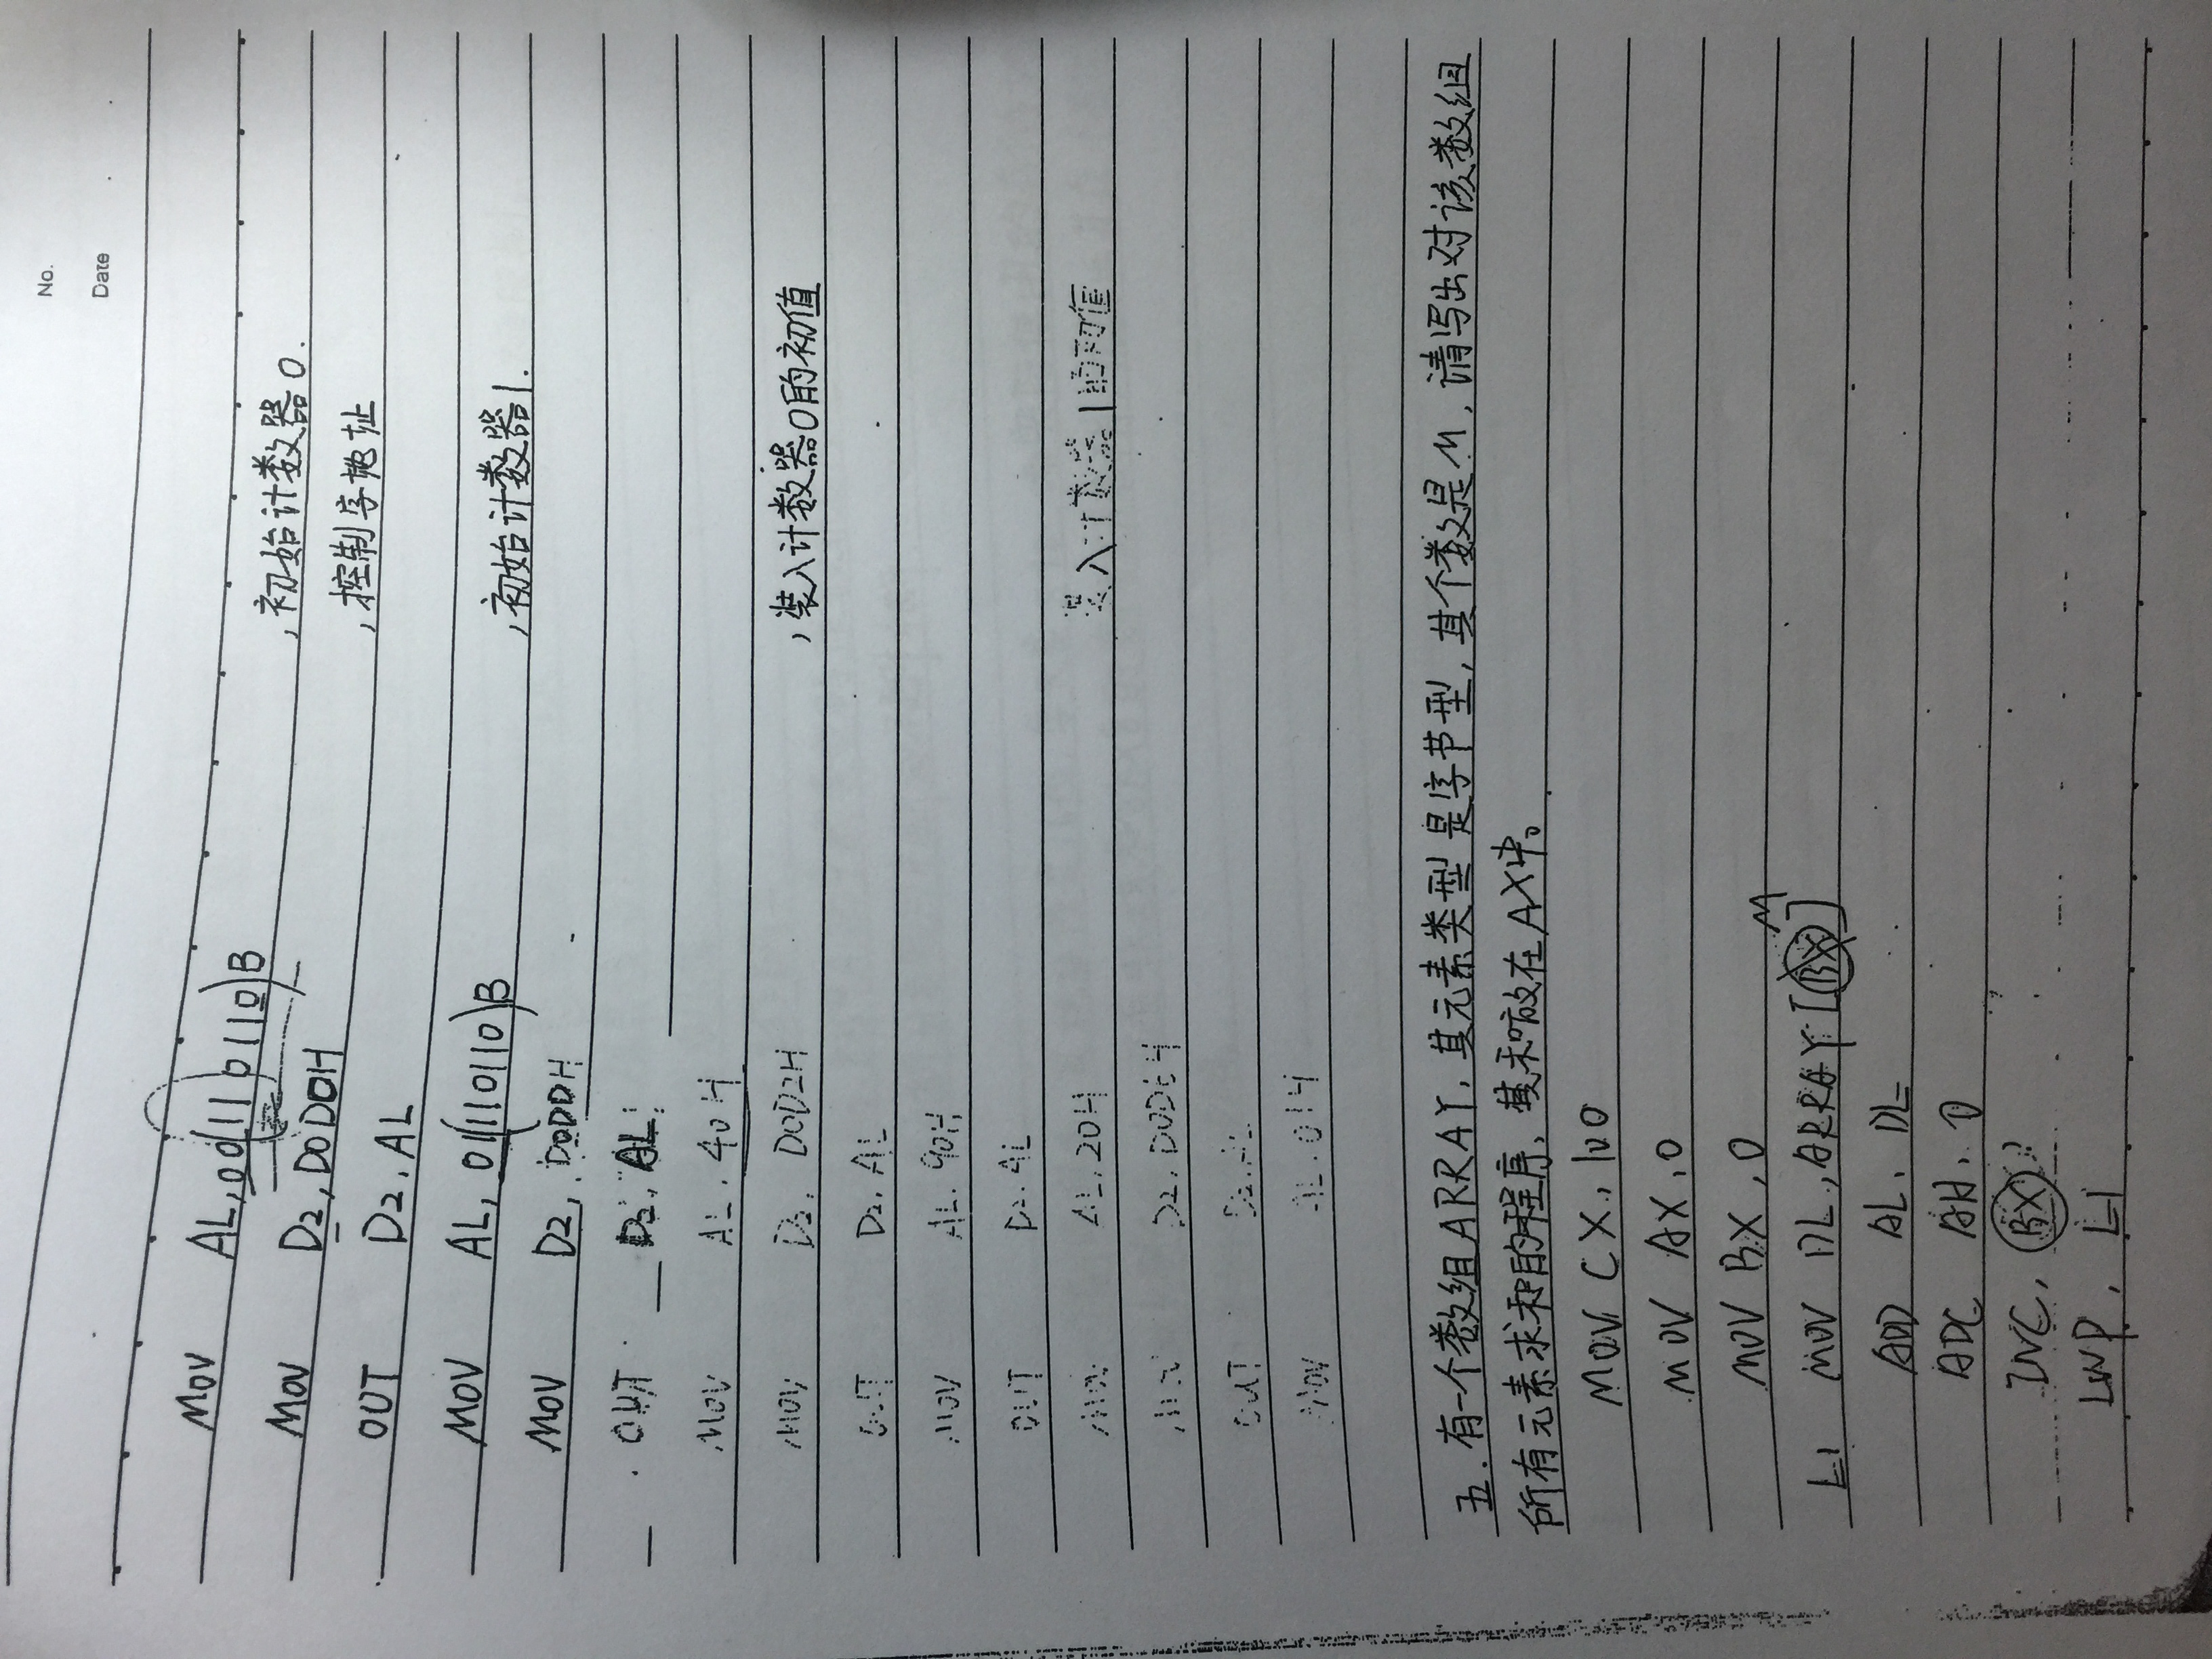 No.
Date
MOV AL, 00(110110)B ,初始计数器0.
MOV D2, D0D0H ,控制字地址
OUT D2, AL
MOV AL, 01(110110)B ,初始计数器1.
MOV D2, D0DDH
OUT D2, AL
MOV AL, 40H
MOV D2, D0D2H ,装入计数器0的初值
OUT D2, AL
MOV AL, 90H
OUT D2, AL
MOV AL, 20H 装入计数器1的初值
MOV D2,
OUT D2, AL
MOV AL, 01H
五.有一个数组ARRAY,其元素类型是字节型,其个数是M,请写出对该数组
所有元素求和的程序,其和放在AX中。
MOV CX, 100
MOV AX, 0
MOV BX, 0
M
L1 MOV DL, ARRAY [BX]
ADD AL, DL
ADC AH, 0
INC, BX
LOOP, L1